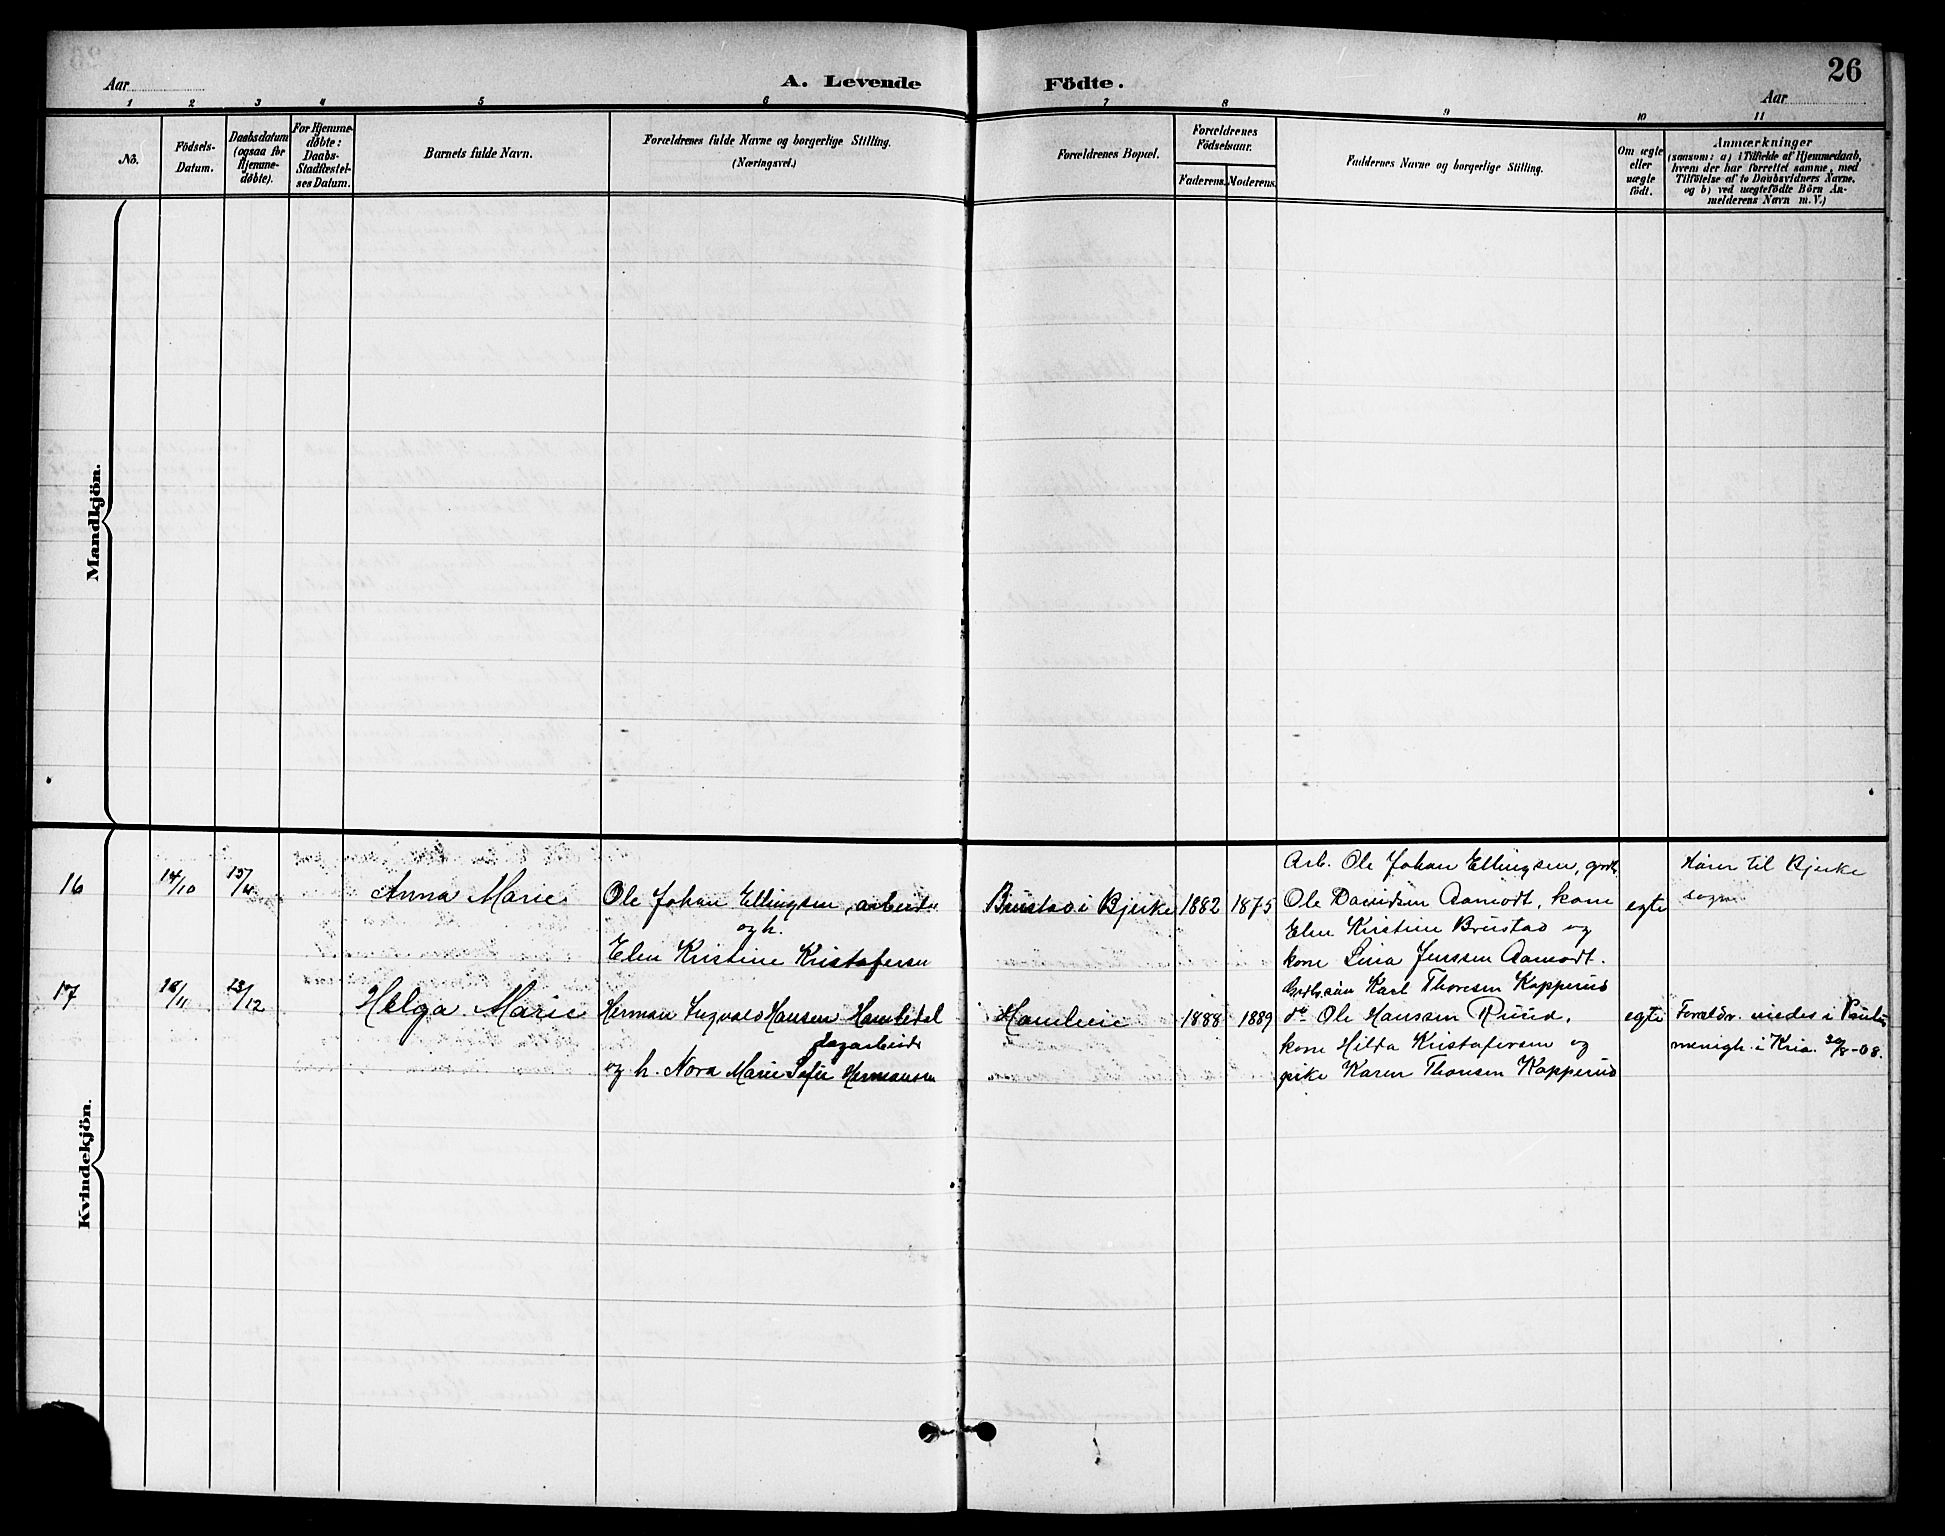 26
Aar
A. Levende
Födte.
Aar
1 2 3 4 5 6 7 8 9 10 11
Nö.
Födsels-
Datum.
Daabsdatum
(ogsaa for
Hjemme-
døbte).
For Hjemme-
døbte:
Daabs-
Stadfæstel-
ses Datum.
Barnets fulde Navn.
Forældrenes fulde Navne og borgerlige Stilling.
(Næringsvei.)
Forældrenes Bopæl.
Forældrenes
Födselsaar.
Faderens.
Moderens.
Faddernes Navne og borgerlige Stilling.
Om ægte
eller
uægte
födt.
Anmærkninger
(saasom: a) i Tilfælde af Hjemmedaab,
hvem der har forrettet samme, med
Tilföielse af to Daabsvidners Navne,
og b) ved uægtefödte Börn An-
melderens Navn m. V.)
Mandkjön.
Kvindekjön.
16
14/10
15/11
Anna Marie
Ole Johan Ellingsen, arbeider
og h.
Elen Kristine Kristofersen
Brustad i Bjerke
1882
1875
Arb. Ole Johan Ellingsen, grdb.
Ole Davidsen Aamodt, kone
Elen Kristine Brustad og
kone Lina Jenssen Aamodt.
egte
Hører til Bjerke
sogn
17
18/11
13/12
Helga Marie
Herman Ingvald Hansen
dagarbeider
og h. Nora Marie Sofie Hermansen
1888
1889
Grdb.søn Karl Thoresen Kopperud
do Ole Hanssen Ruud,
kone Hilda Kristofersen og
pike Karen Thoresen Kopperud
egte
Foreldr. viedes i Paulus
menigh. i Kria. 30/8-08.